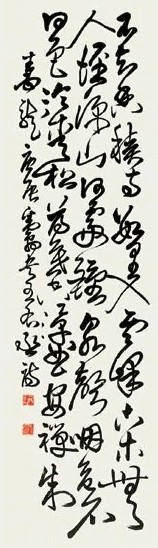 不知香積寺數里入雲峰古木無
人徑深山何處鐘泉聲咽危石
日色冷青松薄暮空潭曲安禪制
毒龍 庚辰